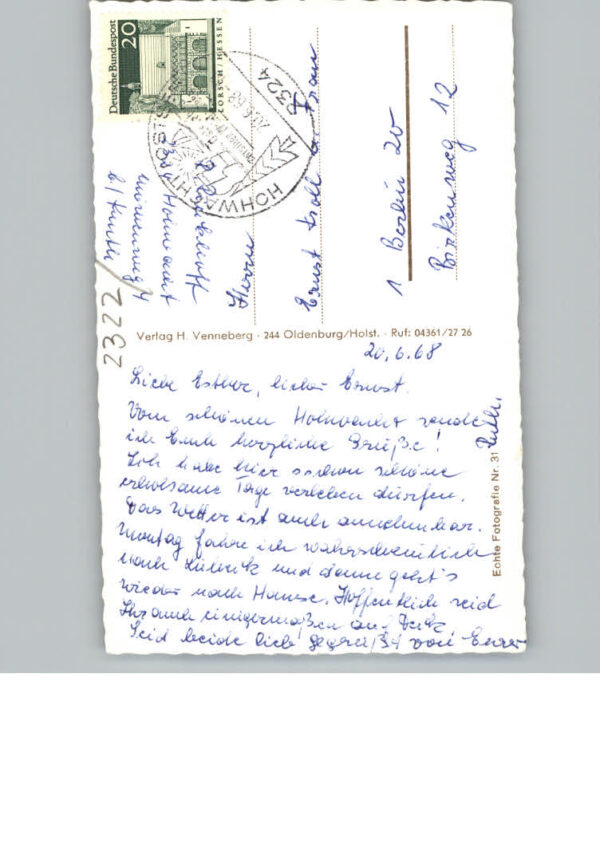 Deutsche Bundespost
20
LORSCH/HESSEN
HOHWACHT OSTSEE
2324
20.6.68
2322
Herrn
Ernst u. Frau
1 Berlin 20
Birkenweg 12
Verlag H. Venneberg · 244 Oldenburg/Holst. · Ruf: 04361/27 26
Echte Fotografie Nr. 31
20.6.68
Liebe Esther, lieber Ernst.
Vom schönen Hohwacht sende
ich Euch herzliche Grüße!
Ich habe hier schon schöne
erholsame Tage verleben dürfen.
Das Wetter ist auch annehmbar.
Montag fahre ich wahrscheinlich
nach und dann geht's
wieder nach Hause. Hoffentlich seid
Ihr auch einigermaßen auf
Seid beide lieb gegrüßt von Eurer
Ruth.